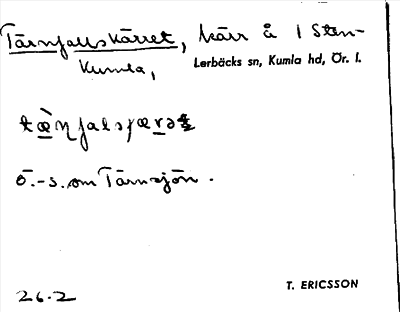 Tärnfallskärret, kärr å 1 Sten-
kumla,
Lerbäcks sn, Kumla hd, Ör. l.
ö.-s. om Tärnsjön.
T. ERICSSON
26.2